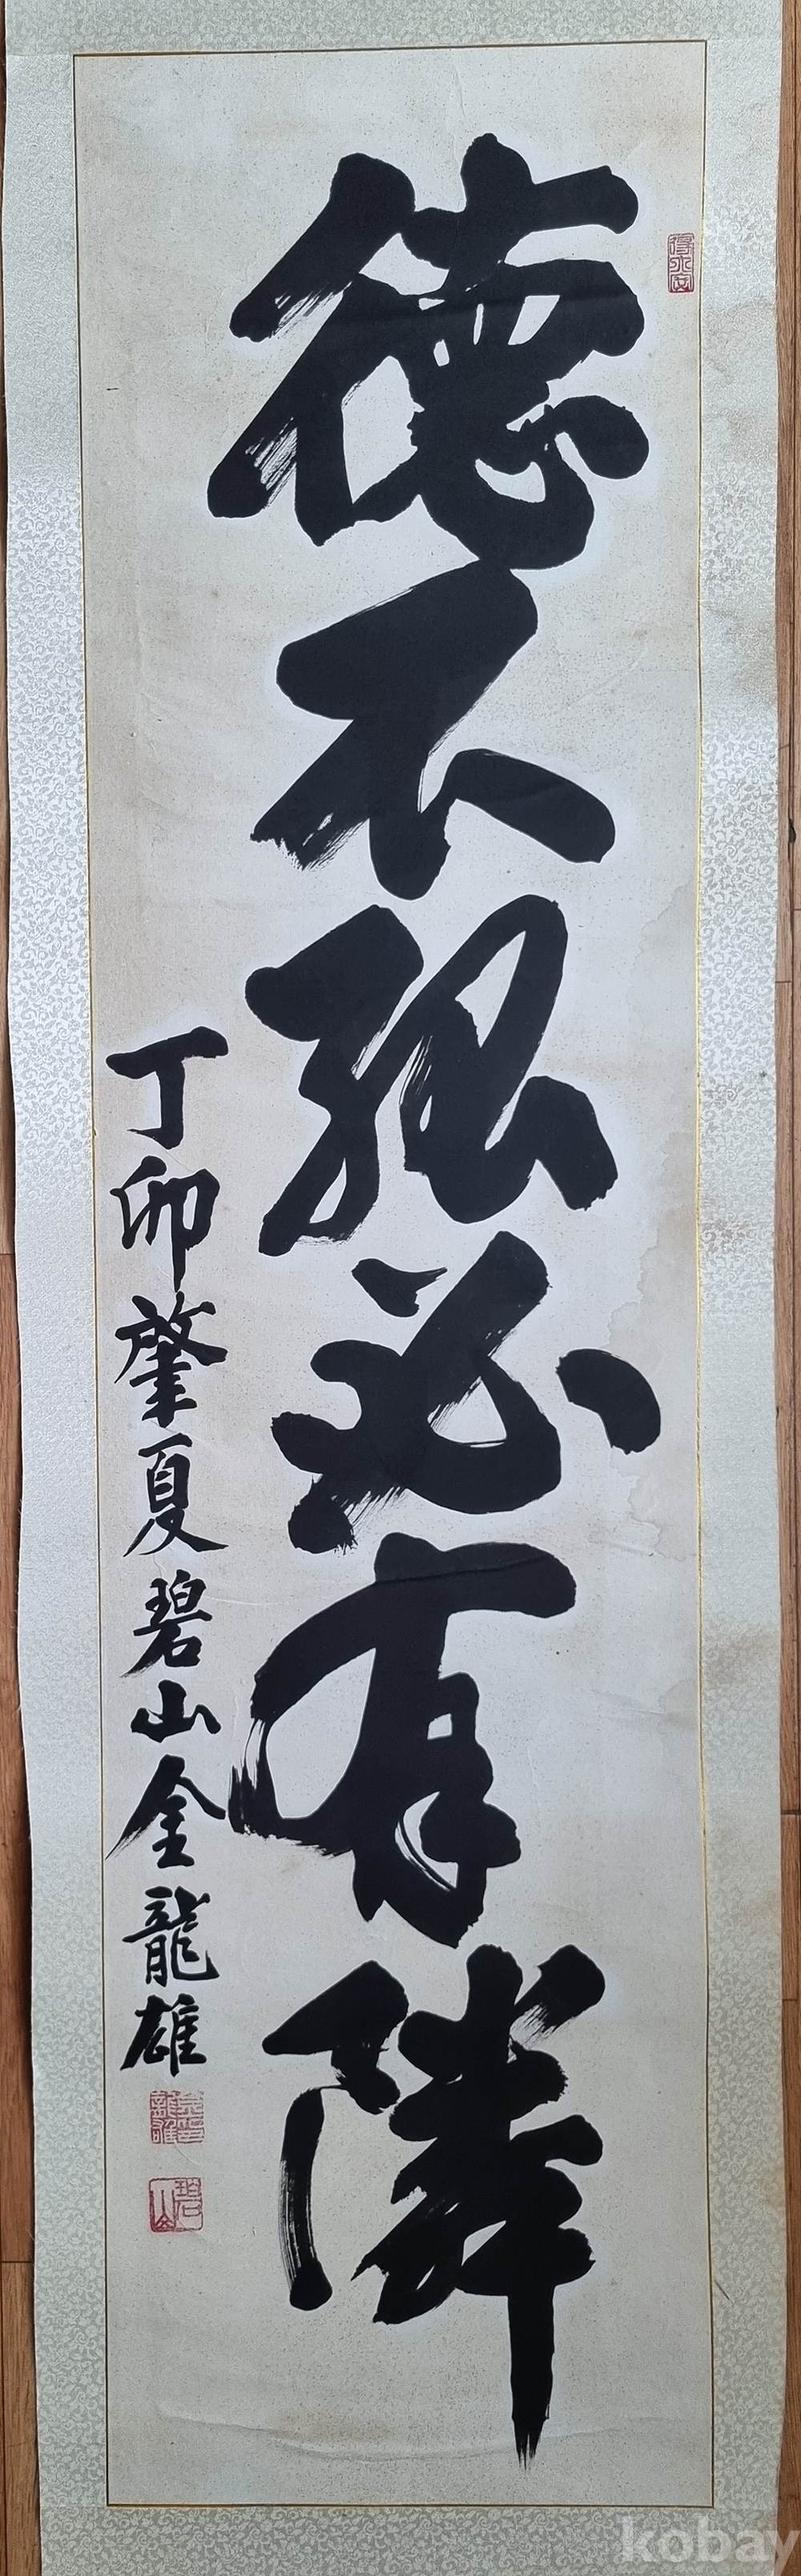 德不孤必有隣
丁卯肇夏碧山金龍雄
碧山
kobay